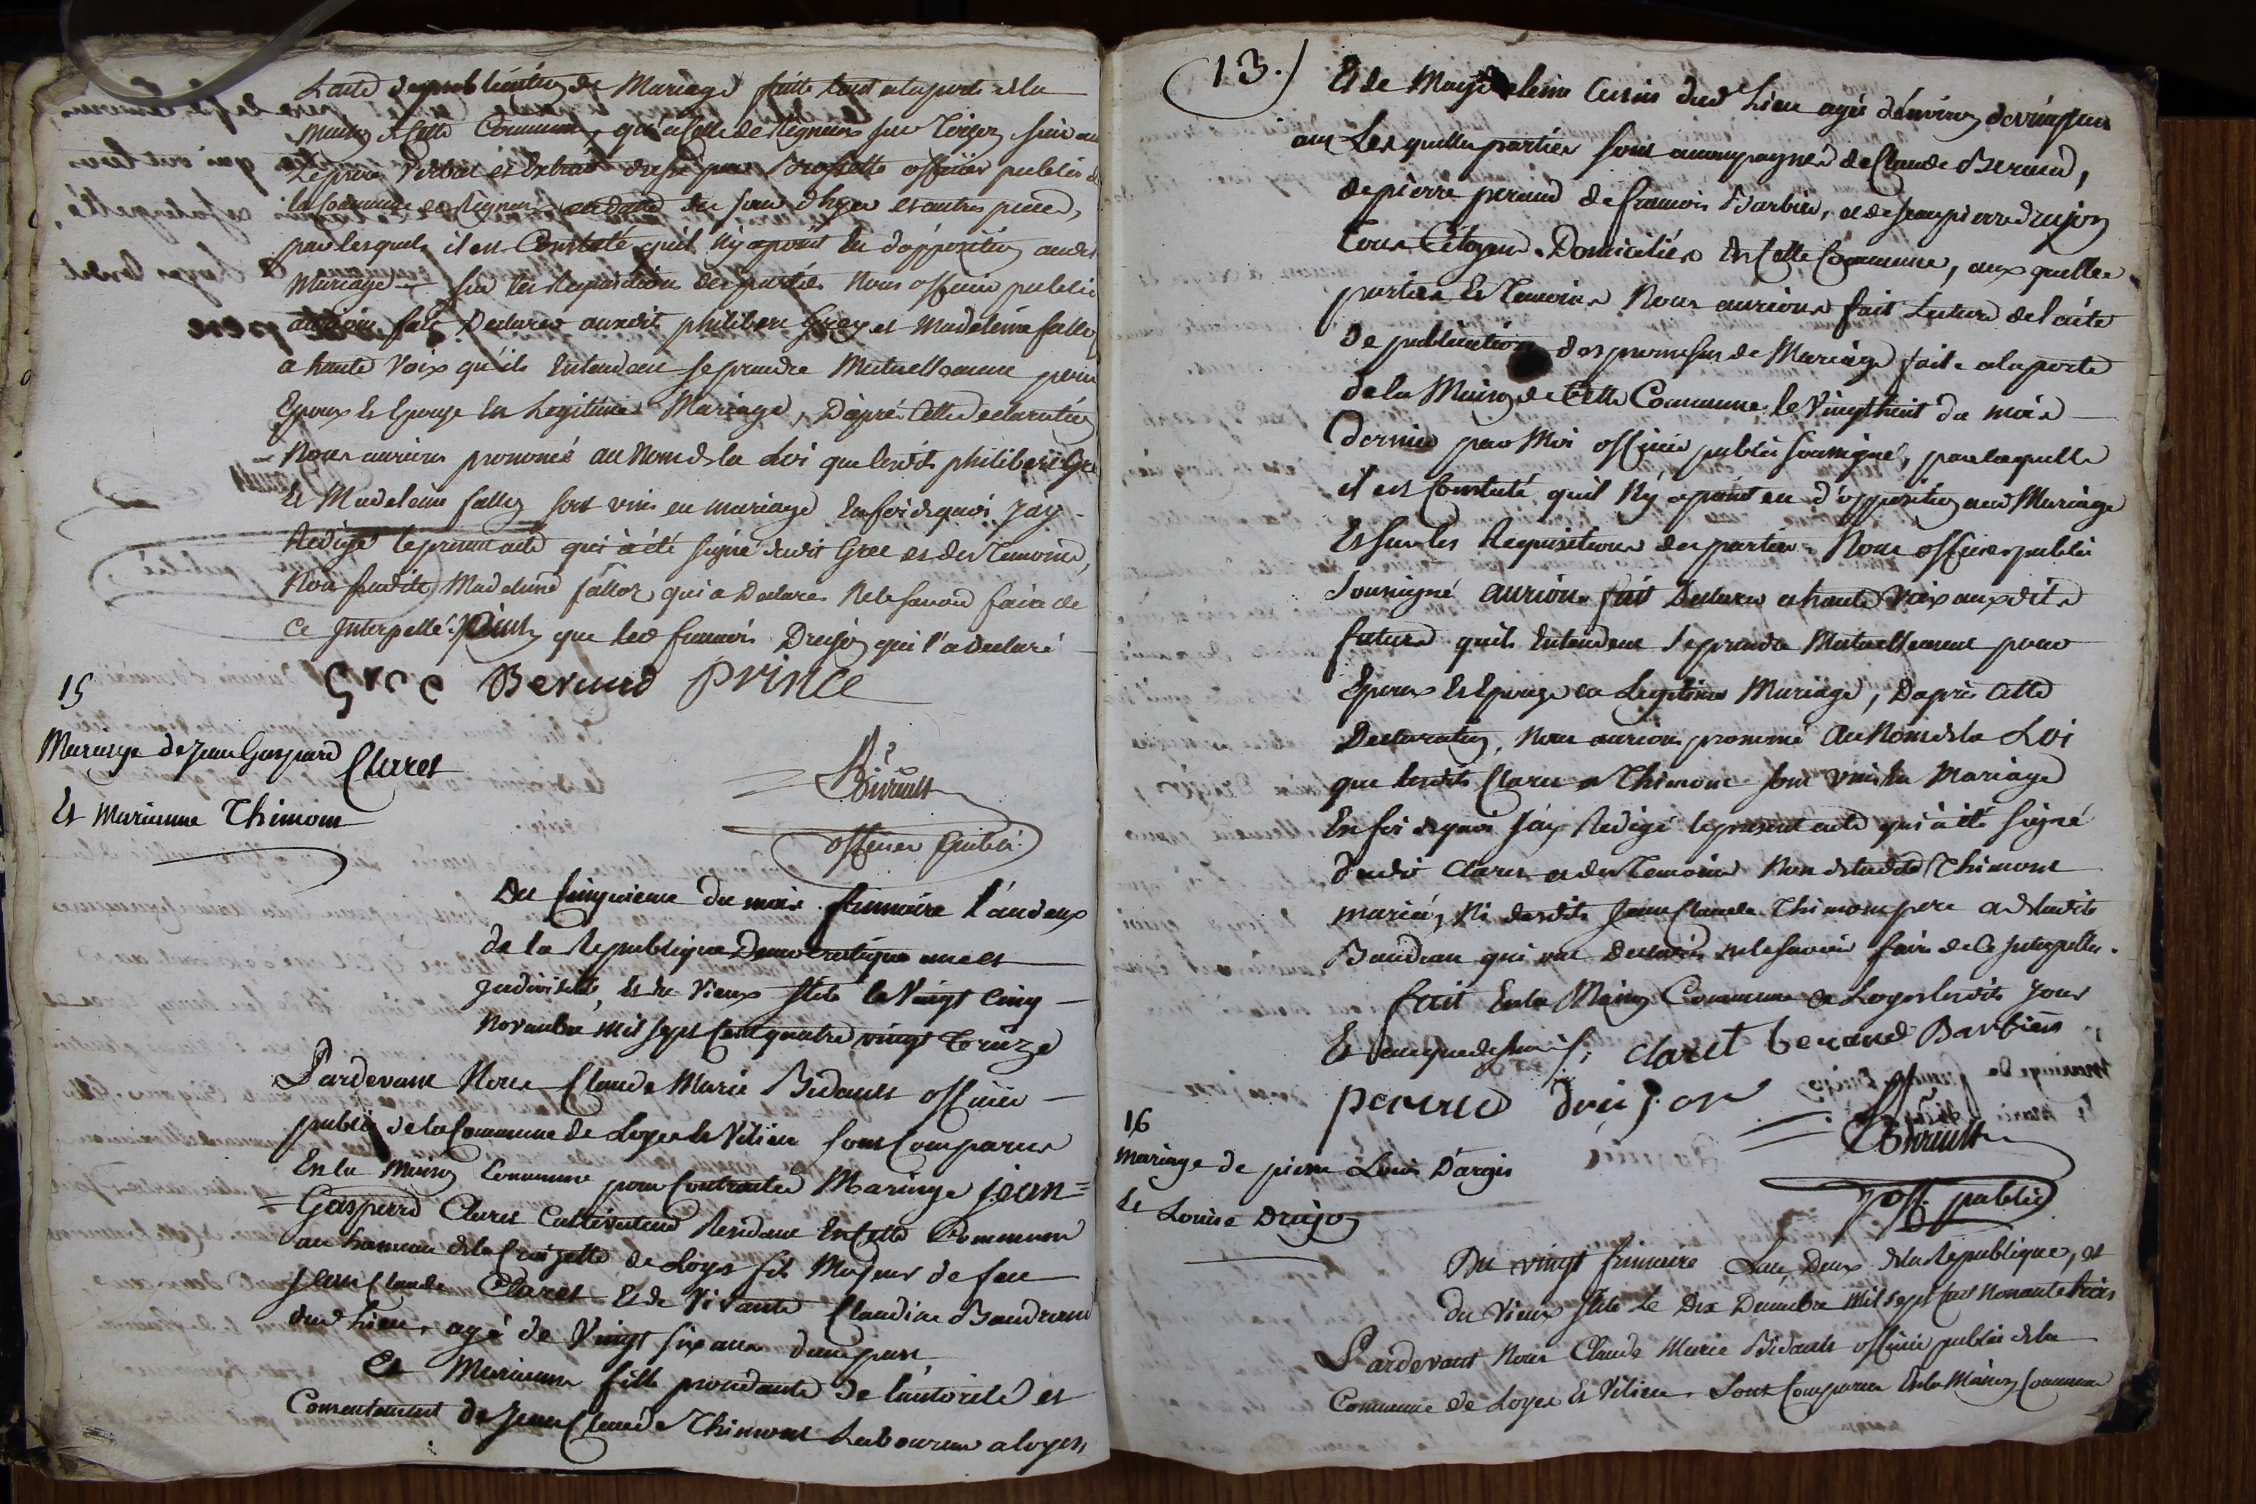 L'acte de publication de Mariage faite tant a la porte de la
maison de cette Commune, qu'a celle de
le procès Verbal et Extrait dressé par officier public de
la Commune de
par lesquels il est Constaté qu'il n'y a point eu d'opposition audit
Mariage Sur les Requisitions des parties Nous officier public
fait Declarer auxdits philibert Gree et Madeleine fallo
a haute Voix qu'ils Entendent se prendre Mutuellement pour
Epoux Et Epouse En Legitime Mariage, D'après Cette declaration
Nous aurions prononcé au Nom de la Loi que lesdits philibert Gre
Et Madeleine fallo sont unis en mariage En foi de quoi j'ay
Redigé le present acte qui a été signé dudit Gree et des Temoins,
Non Madeleine fallo qui a Declaré Ne le Savoir faire de
Ce Interpellé que led francois Drujon qui l'a declaré
Gree Beraud PRINCE
15
Mariage de Jean Gaspard Claret
Et Marianne Thimont
Bidault
officier public
Du Cinquieme du mois frimaire l'an deux
de la Republique Democratique une et
Indivisible, Et du Vieux Stile le Vingt Cinq
Novembre mil Sept Cent quatre vingt Treize
Pardevant Nous Claude Marie Bidault officier
public de la Commune de Loyes Et Vilieu sont Comparus
En la Maison Commune pour Contracter Mariage jean=
=Gasperd Claret Cultivateur Residant En Cette Commune
au hameau de la Croizette de Loyes fils Majeur de feu
Jean Claude Claret Et de Vivante Claudine Baudrand
dud Lieu, agé de Vingt six ans d'une part,
Et Marianne fille procedante de l'autorité et
Consentement de Jean Claude Thimont Laboureur a Loyes,
13.
Et de Magdeleine Cusin dud Lieu agée d'environ
ans Lesquelles parties sont accompagnés de Claude Beraud,
de pierre peraud de francois Barbier, et de Jean pierre Drujon
Tous Citoyens Domiciliés En Cette Commune, aux quelles
parties Et Temoins Nous aurions fait Lecture de l'acte
de publication des promesses de Mariage faite a la porte
de la Maison de Cette Commune le Vingt huit du mois
Dernier par Moi officier public soussigné, par laquelle
il est Constaté qu'il N'y a point eu d'opposition aud Mariage
Et Sur les Requisitions des parties Nous officier public
Soussigné aurions fait Declarer a haute Voix auxdits
futurs qu'ils Entendent se prendre Mutuellement pour
Epoux Et Epouse en Legitime Mariage, D'après Cette
Declaration, Nous aurions prononcé Au Nom de la Loi
que lesdits Claret et Thimont sont unis En Mariage
En foi de quoi J'ay Redigé le present acte qui a été signé
dudit Claret et des Temoins Non de ladite Thimont
mariée, Ni desdits Jean Claude Thimont pere et de ladite
Baudran qui ont declaré ne le savoir faire de Ce Interpellés.
fait En la Maison Commune de Loyes lesdits jour
Et an que dessus claret beraud Barbier
peraud drujon
Bidault
off. public
16
Mariage de pierre Louis D'argis
Et Louise Drujon
Du vingt frimaire L'an Deux de la Republique, et
du Vieux Stile Le Dix Decembre Mil Sept Cent Nonante trois
Pardevant Nous Claude Marie Bidault officier public de la
Commune de Loyes Et Vilieu Sont Comparus En la Maison Commune